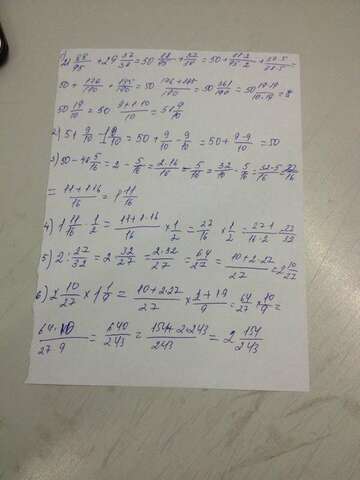 1) 21 88/95 + 29 37/38 = 50 88/95 + 37/38 = 50 + 88·2/95·2 + 37·5/38·5 =
50 + 176/190 + 185/190 = 50 176+185/190 = 50 361/190 = 50 19·19/10·19 =
50 19/10 = 50 9+1·10/10 = 51 9/10
2) 51 9/10 - 1 9/10 = 50 + 9/10 - 9/10 = 50 + 9-9/10 = 50
3) 50 - 48 5/16 = 2 - 5/16 = 2·16/16 - 5/16 = 32/16 - 5/16 = 32-5/16 = 27/16
= 11+1·16/16 = 1 11/16
4) 1 11/16 · 1/2 = 11+1·16/16 × 1/2 = 27/16 × 1/2 = 27·1/16·2 = 27/32
5) 2 : 27/32 = 2 · 32/27 = 2·32/27 = 64/27 = 10+2·27/27 = 2 10/27
6) 2 10/27 × 1 1/9 = 10+2·27/27 × 1+1·9/9 = 64/27 × 10/9 =
64·10/27·9 = 640/243 = 154+2·243/243 = 2 154/243